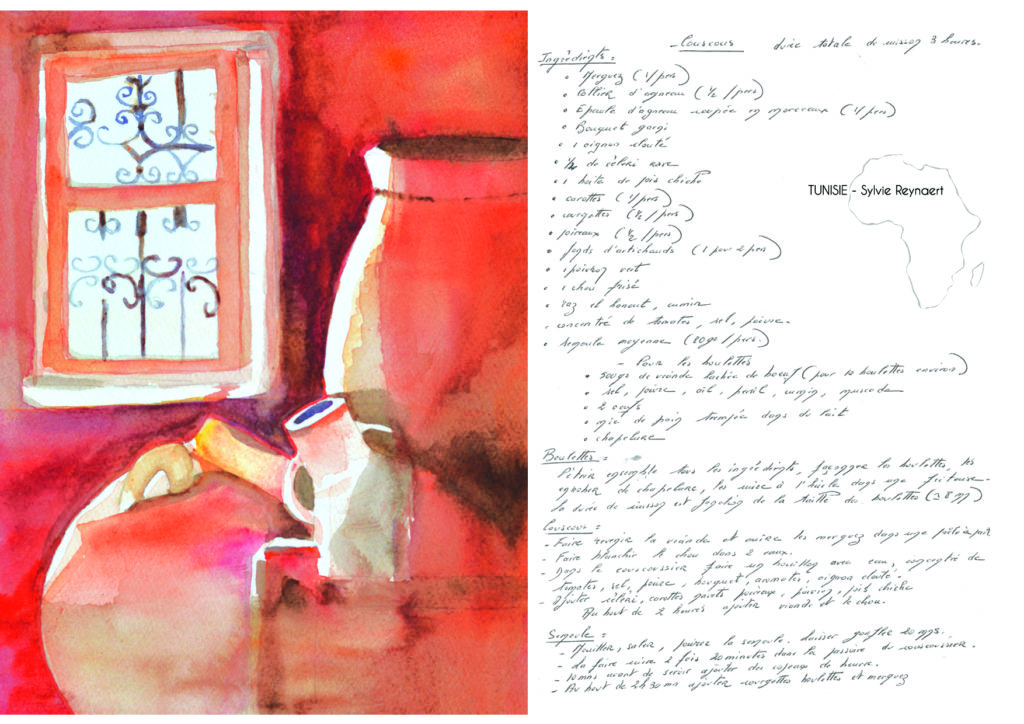 - Couscous durée totale de cuisson 3 heures.
Ingrédients :
• Merguez (1/pers)
• Collier d'agneau (1/2 /pers)
• Epaule d'agneau coupée en morceaux (1/pers)
• Bouquet garni
• 1 oignon clouté
• 1/2 de céleri rave
• 1 boite de pois chiche
• carottes (1/pers)
• courgettes (1/2 /pers)
• poireaux (1/2 /pers)
• fonds d'artichauds (1 pour 2 pers)
• 1 poivron vert
• 1 chou frisé
• raz el hanout, cumin
• concentré de tomates, sel, poivre.
• semoule moyenne (80gr/pers.)
- Pour les boulettes
• 500gr de viande hachée de boeuf (pour 10 boulettes environ)
• sel, poivre, ail, persil, cumin, muscade
• 2 oeufs
• mie de pain trempée dans du lait
• chapelure
TUNISIE - Sylvie Reynaert
Boulettes :
Pétrir ensemble tous les ingrédients, façonner les boulettes, les
enrober de chapelure, les cuire à l'huile dans une friteuse.
La durée de cuisson est fonction de la taille des boulettes (± 8 mn)
Couscous :
- Faire revenir la viande et cuire les merguez dans une poêle à part
- Faire blanchir le chou dans 2 eaux.
- Dans le couscoussier faire un bouillon avec eau, concentré de
tomates, sel, poivre, bouquet, aromates, oignon clouté.
- Ajouter céleri, carottes navets poireaux, poivron, pois chiche
Au bout de 2 heures ajouter viande et le chou.
Semoule :
- Mouiller, saler, poivrer la semoule. Laisser gonfler 20 mns.
- La faire cuire 2 fois 20 minutes dans la passoire du couscoussier.
- 10 mns avant de servir ajouter des copeaux de beurre.
- Au bout de 2h30 mn ajouter courgettes boulettes et merguez